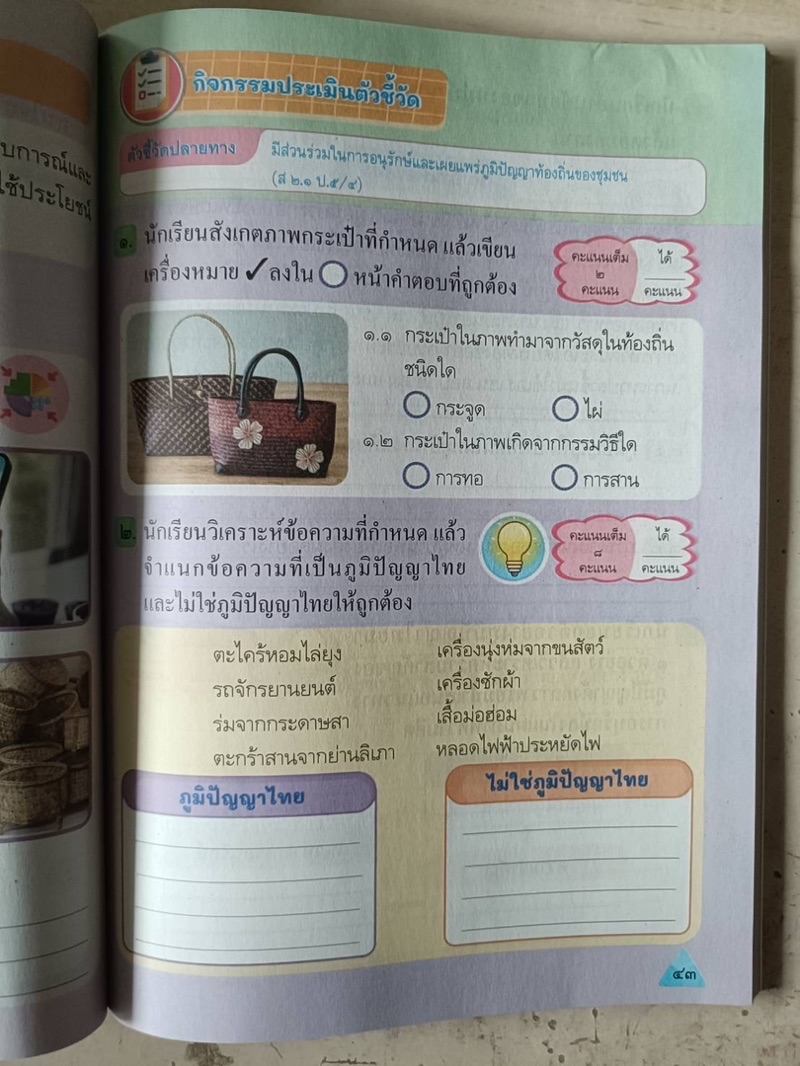 บการณ์และ
ใช้ประโยชน์
กิจกรรมประเมินตัวชี้วัด
ตัวชี้วัดปลายทาง
มีส่วนร่วมในการอนุรักษ์และเผยแพร่ภูมิปัญญาท้องถิ่นของชุมชน
(ส ๒.๑ ป.๕/๔)
๑. นักเรียนสังเกตภาพกระเป๋าที่กำหนด แล้วเขียน
เครื่องหมาย ✓ ลงใน ◯ หน้าคำตอบที่ถูกต้อง
คะแนนเต็ม
๒
คะแนน
ได้
คะแนน
๑.๑ กระเป๋าในภาพทำมาจากวัสดุในท้องถิ่น
ชนิดใด
◯ กระจูด ◯ ไผ่
๑.๒ กระเป๋าในภาพเกิดจากกรรมวิธีใด
◯ การทอ ◯ การสาน
๒. นักเรียนวิเคราะห์ข้อความที่กำหนด แล้ว
จำแนกข้อความที่เป็นภูมิปัญญาไทย
และไม่ใช่ภูมิปัญญาไทยให้ถูกต้อง
คะแนนเต็ม
๘
คะแนน
ได้
คะแนน
ตะไคร้หอมไล่ยุง เครื่องนุ่งห่มจากขนสัตว์
รถจักรยานยนต์ เครื่องซักผ้า
ร่มจากกระดาษสา เสื้อม่อฮ่อม
ตะกร้าสานจากย่านลิเภา หลอดไฟฟ้าประหยัดไฟ
ภูมิปัญญาไทย
ไม่ใช่ภูมิปัญญาไทย
๔๓